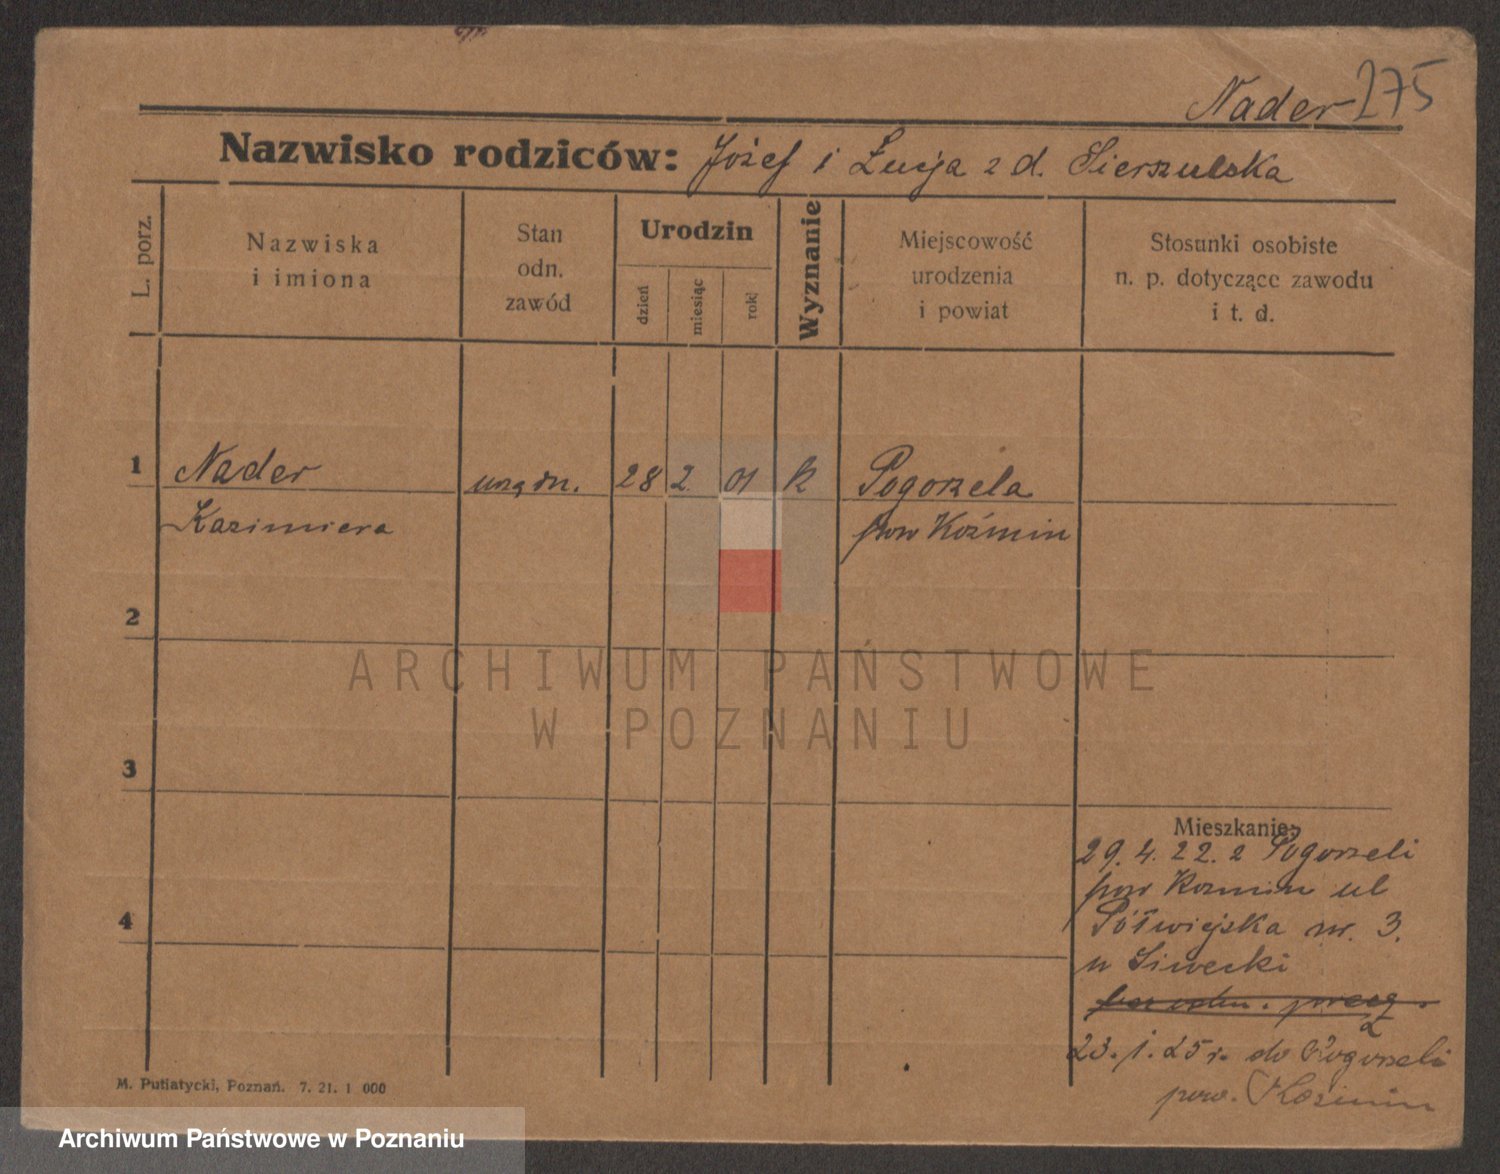 Nader 275
Nazwisko rodziców: Józef i Łucja z d. Sierszulska
L. porz.
Nazwiska
i imiona
Stan
odn.
zawód
Urodzin
dzień
miesiąc
rok
Wyznanie
Miejscowość
urodzenia
i powiat
Stosunki osobiste
n. p. dotyczące zawodu
i t. d.
1 Nader urzędn. 28 2 01 k Pogorzela
Kazimiera pow Koźmin
2
ARCHIWUM PAŃSTWOWE
W POZNANIU
3
Mieszkanie:
29.4.22. z Pogorzeli
pow Kozmin ul
4
Półwiejska nr. 3.
u Siwecki
23.1.25 r. do Pogorzeli
pow. Kozmin
M. Putiatycki, Poznań. 7. 21. 1 000
Archiwum Państwowe w Poznaniu